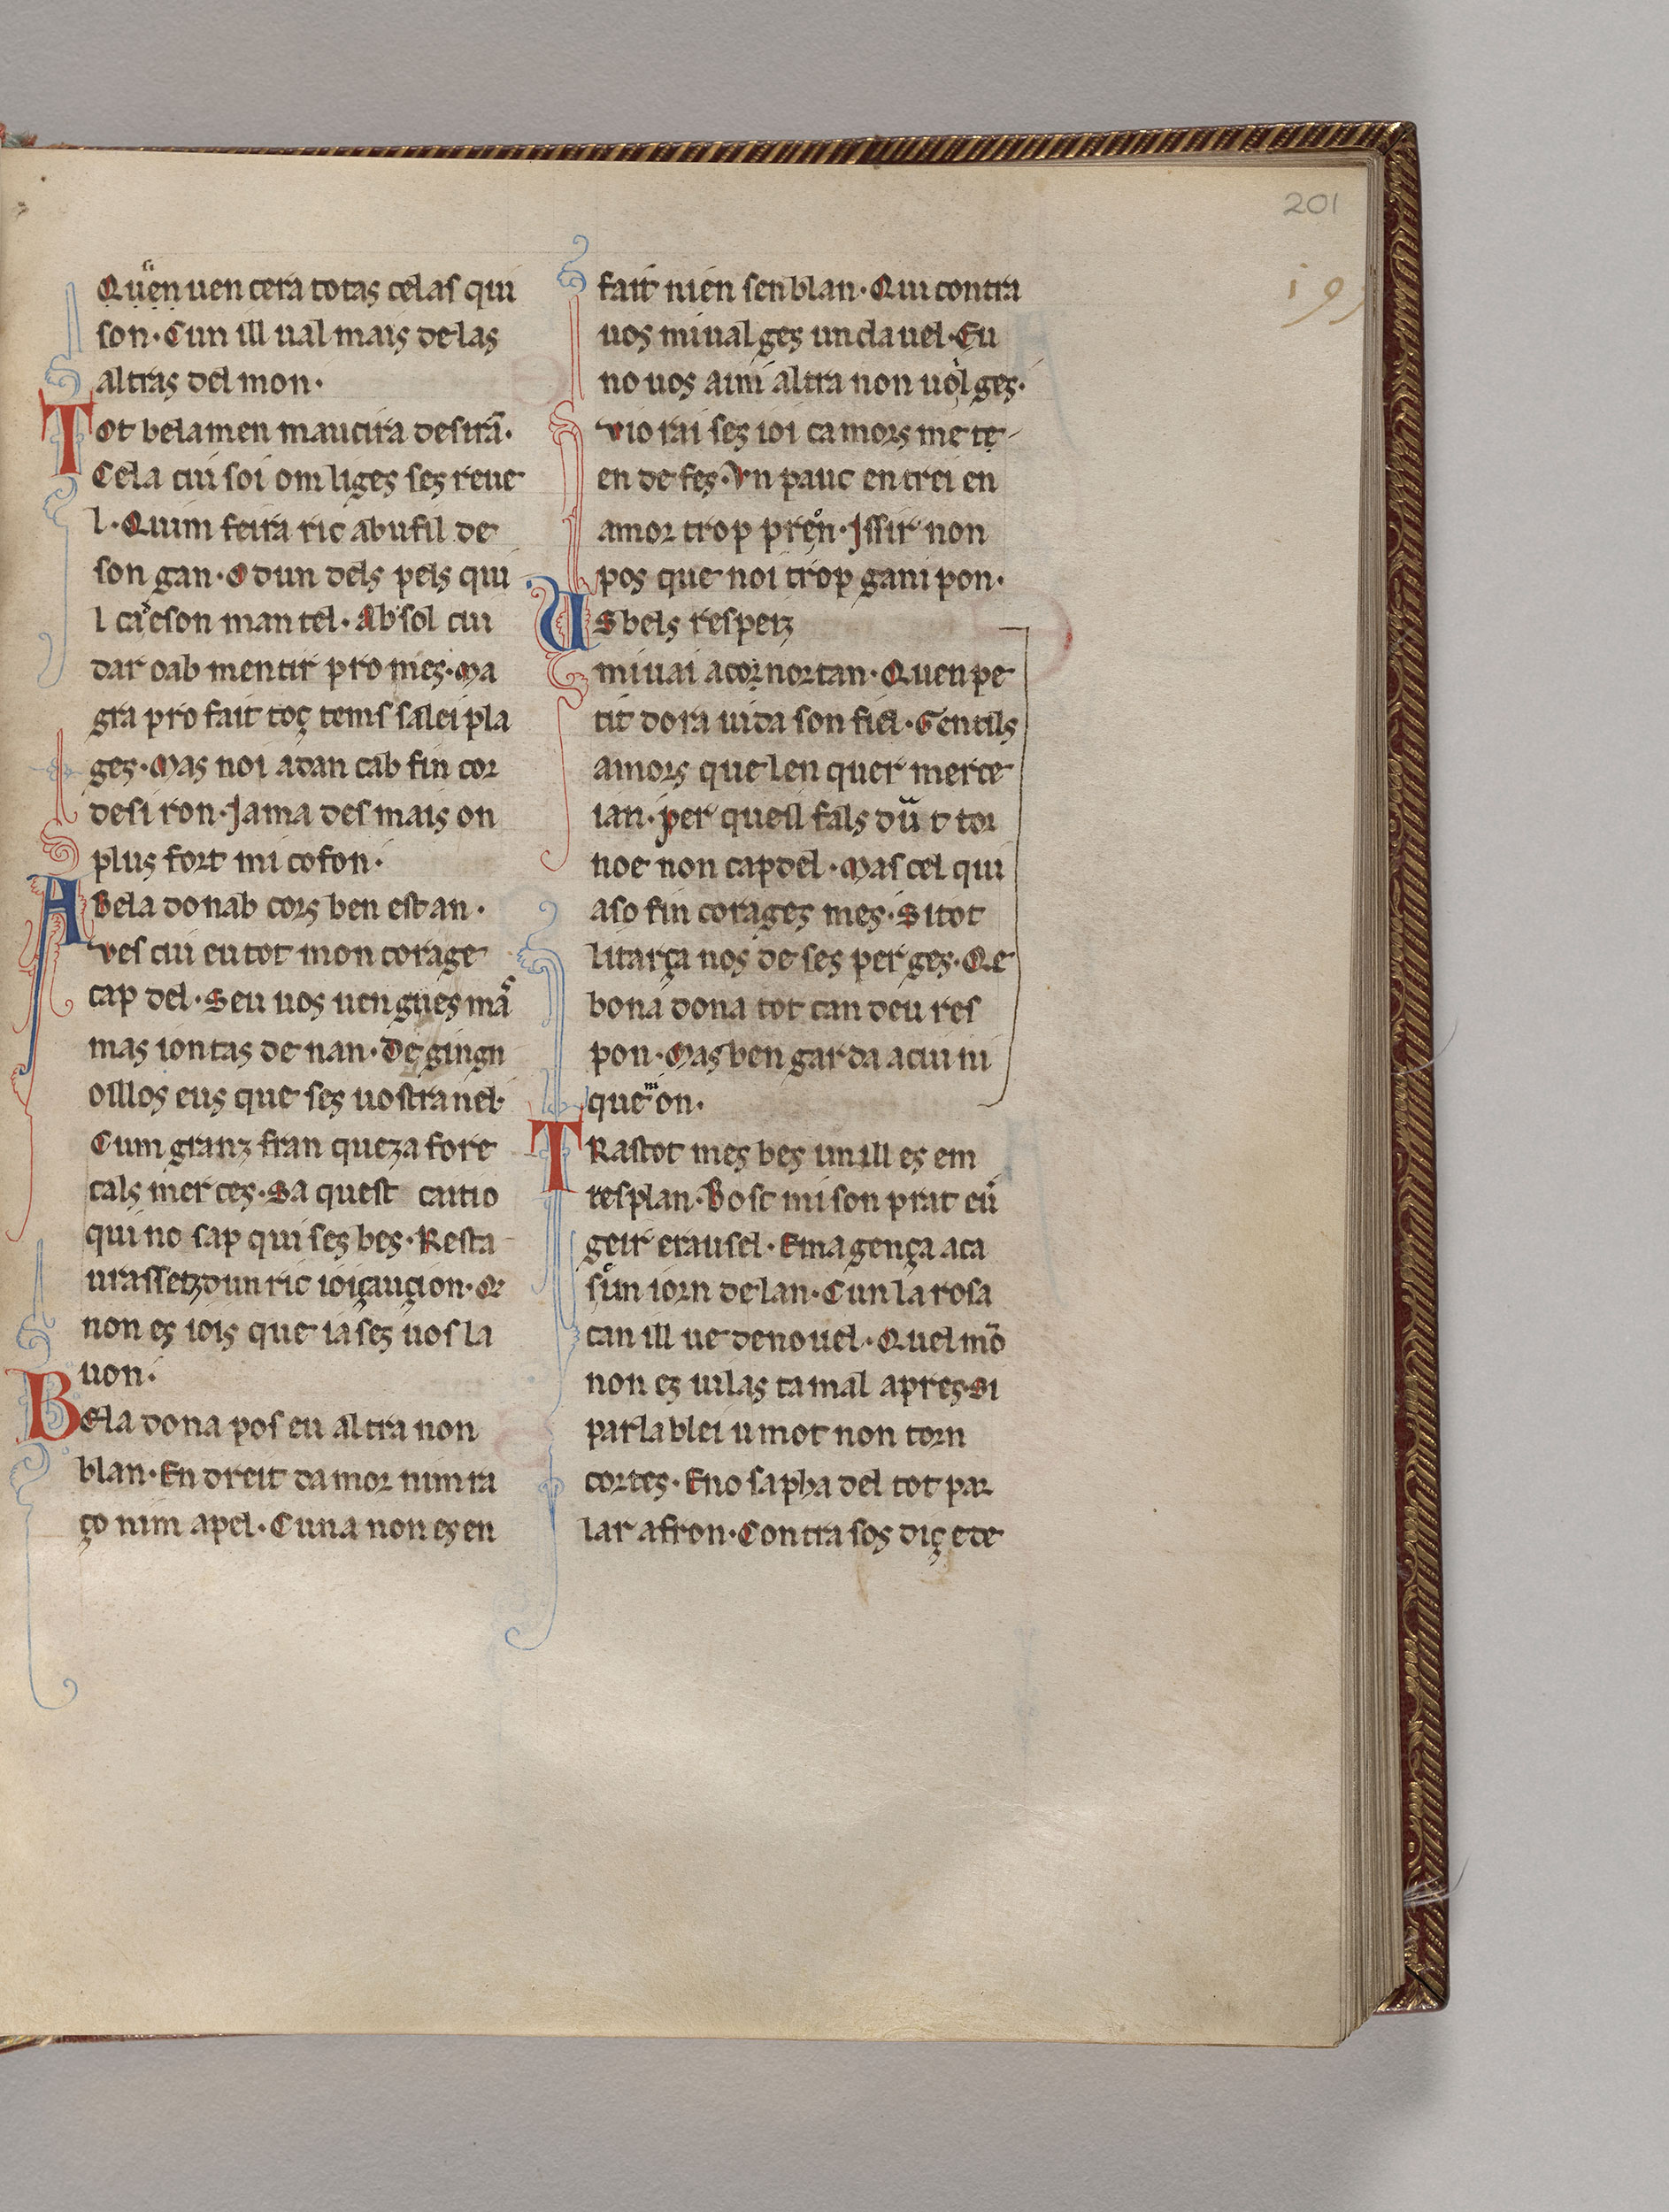 201
Quen uen cera totas celas qui
son· Cun ill ual mais de las
altras del mon·
Tot bela men maucira desirã·
Cela cui soi om liges ses reue
l· Quim feira ric ab u fil de
son gan· O dun dels pels qui
l cãeson man tel· Ab sol cui
dar o ab mentir pro mes· Ma
gra pro fait toç tems salei pla
ges· Mas noi a dan cab fin cor
desi ron· Ja ma des mais on
plus fort mi cofon·
A Bela donab cors ben estan·
Ves cui eu tot mon corage
cap del· Seu uos uen gues mã
mas iontas de nan· De gingn
oillos eus que ses uostranel·
Cum granz fran queza fore
cals mer ces· Sa quest catio
qui no sap qui ses bes· Resta
urassetz dun ric ioi çauçion· Qe
non es iois que ia ses uos la
uon·
Bela dona pos eu altra non
blan· En dreit da mor nim ra
ço nim apel· Cuna non es en
fait nien sen blan· Qui contra
uos mi ual ges un clauel· Eu
no uos aim altra non uol ges·
Vio rai ses ioi ca mors me te
en de fes· Vn pauc en trei en
amor trop pren· Issir non
pos que noi trop gani pon·
Us bels respeiz
mi uai acornortan· Quen pe
tit dora uida son fiel· Gentils
amors quel en quer merce
ian· Per quesil fals dũt tor
noe non capdel· Mas cel qui
aso fin corages mes· Si tot
litarça nos de ses per ges· Qe
bona dona tot can deu res
pon· Mas ben gar da a cui ni
que on·
TRastot mes bes un ill es em
resplan· Bosc mi son prat eũ
geir erausel· Ema gença aca
sun iorn de lan· Cun la rosa
can ill ue de nouel· Quel mõ
non es uilas ta mal apres· Si
parlab lei u mot non torn
cortes· Eno sapha del tot par
lar afron· Contra sos diç ede